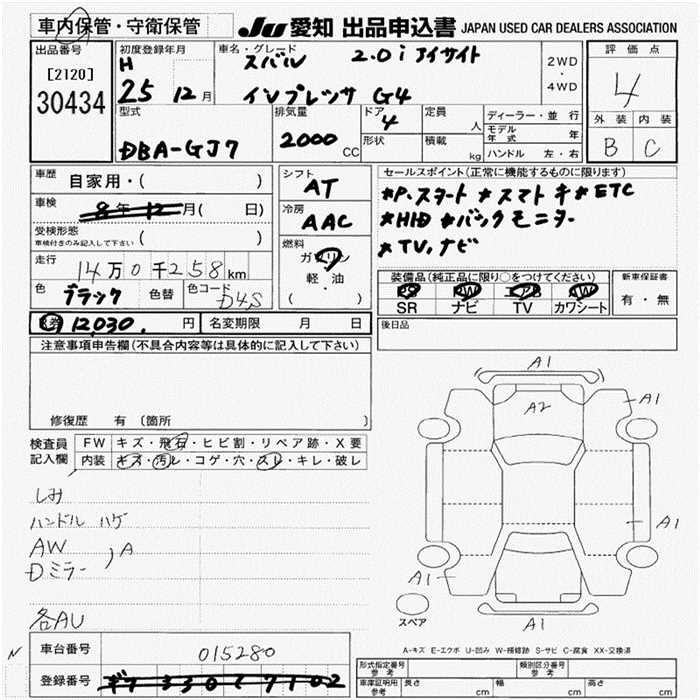 車内保管・守衛保管 JU 愛知 出品申込書 JAPAN USED CAR DEALERS ASSOCIATION
出品番号 初度登録年月 車名・グレード 評価点
[2120] H スバル 2.0i アイサイト 2WD・4WD 4
30434 25 12月 インプレッサ G4
型式 排気量 ドア 4 定員 人 ディーラー・並行 外装 内装
DBA-GJ7 2000 CC 形状 積載 kg モデル年式 年 B C
ハンドル 左・右
車歴 自家用・( ) シフト AT セールスポイント(正常に機能するものに限ります)
車検 8年 12月( 日) 冷房 AAC *P.スタート *スマートキー *ETC
受検形態 ( ) *HID *バックモニター
車検付きのみ記入して下さい 燃料 ガソリン *TV,ナビ
走行 14万0千258km 軽・油
色 ブラック 色替 色コード D4S ( ) 装備品(純正品に限り○をつけてください) 新車保証書
PS PW エアB AW 有・無
SR ナビ TV カワシート
R券 12,030. 円 名変期限 月 日 後日品
注意事項申告欄(不具合内容等は具体的に記入して下さい)
修復歴 有 〔箇所 〕
検査員 FW キズ・飛石・ヒビ割・リペア跡・X要
記入欄 内装 キズ・汚レ・コゲ・穴・スレ・キレ・破レ
しみ
ハンドル ハゲ
AW
Dミラー ) A
各AU
A1
A2
A1
A1
A1
A1
スペア
A-キズ E-エクボ U-凹み W-補修跡 S-サビ C-腐食 XX-交換済
N 車台番号 015280
登録番号
形式指定番号 参考 類別区分番号 参考
車庫証明用 参考 長さ cm 幅 cm 高さ cm